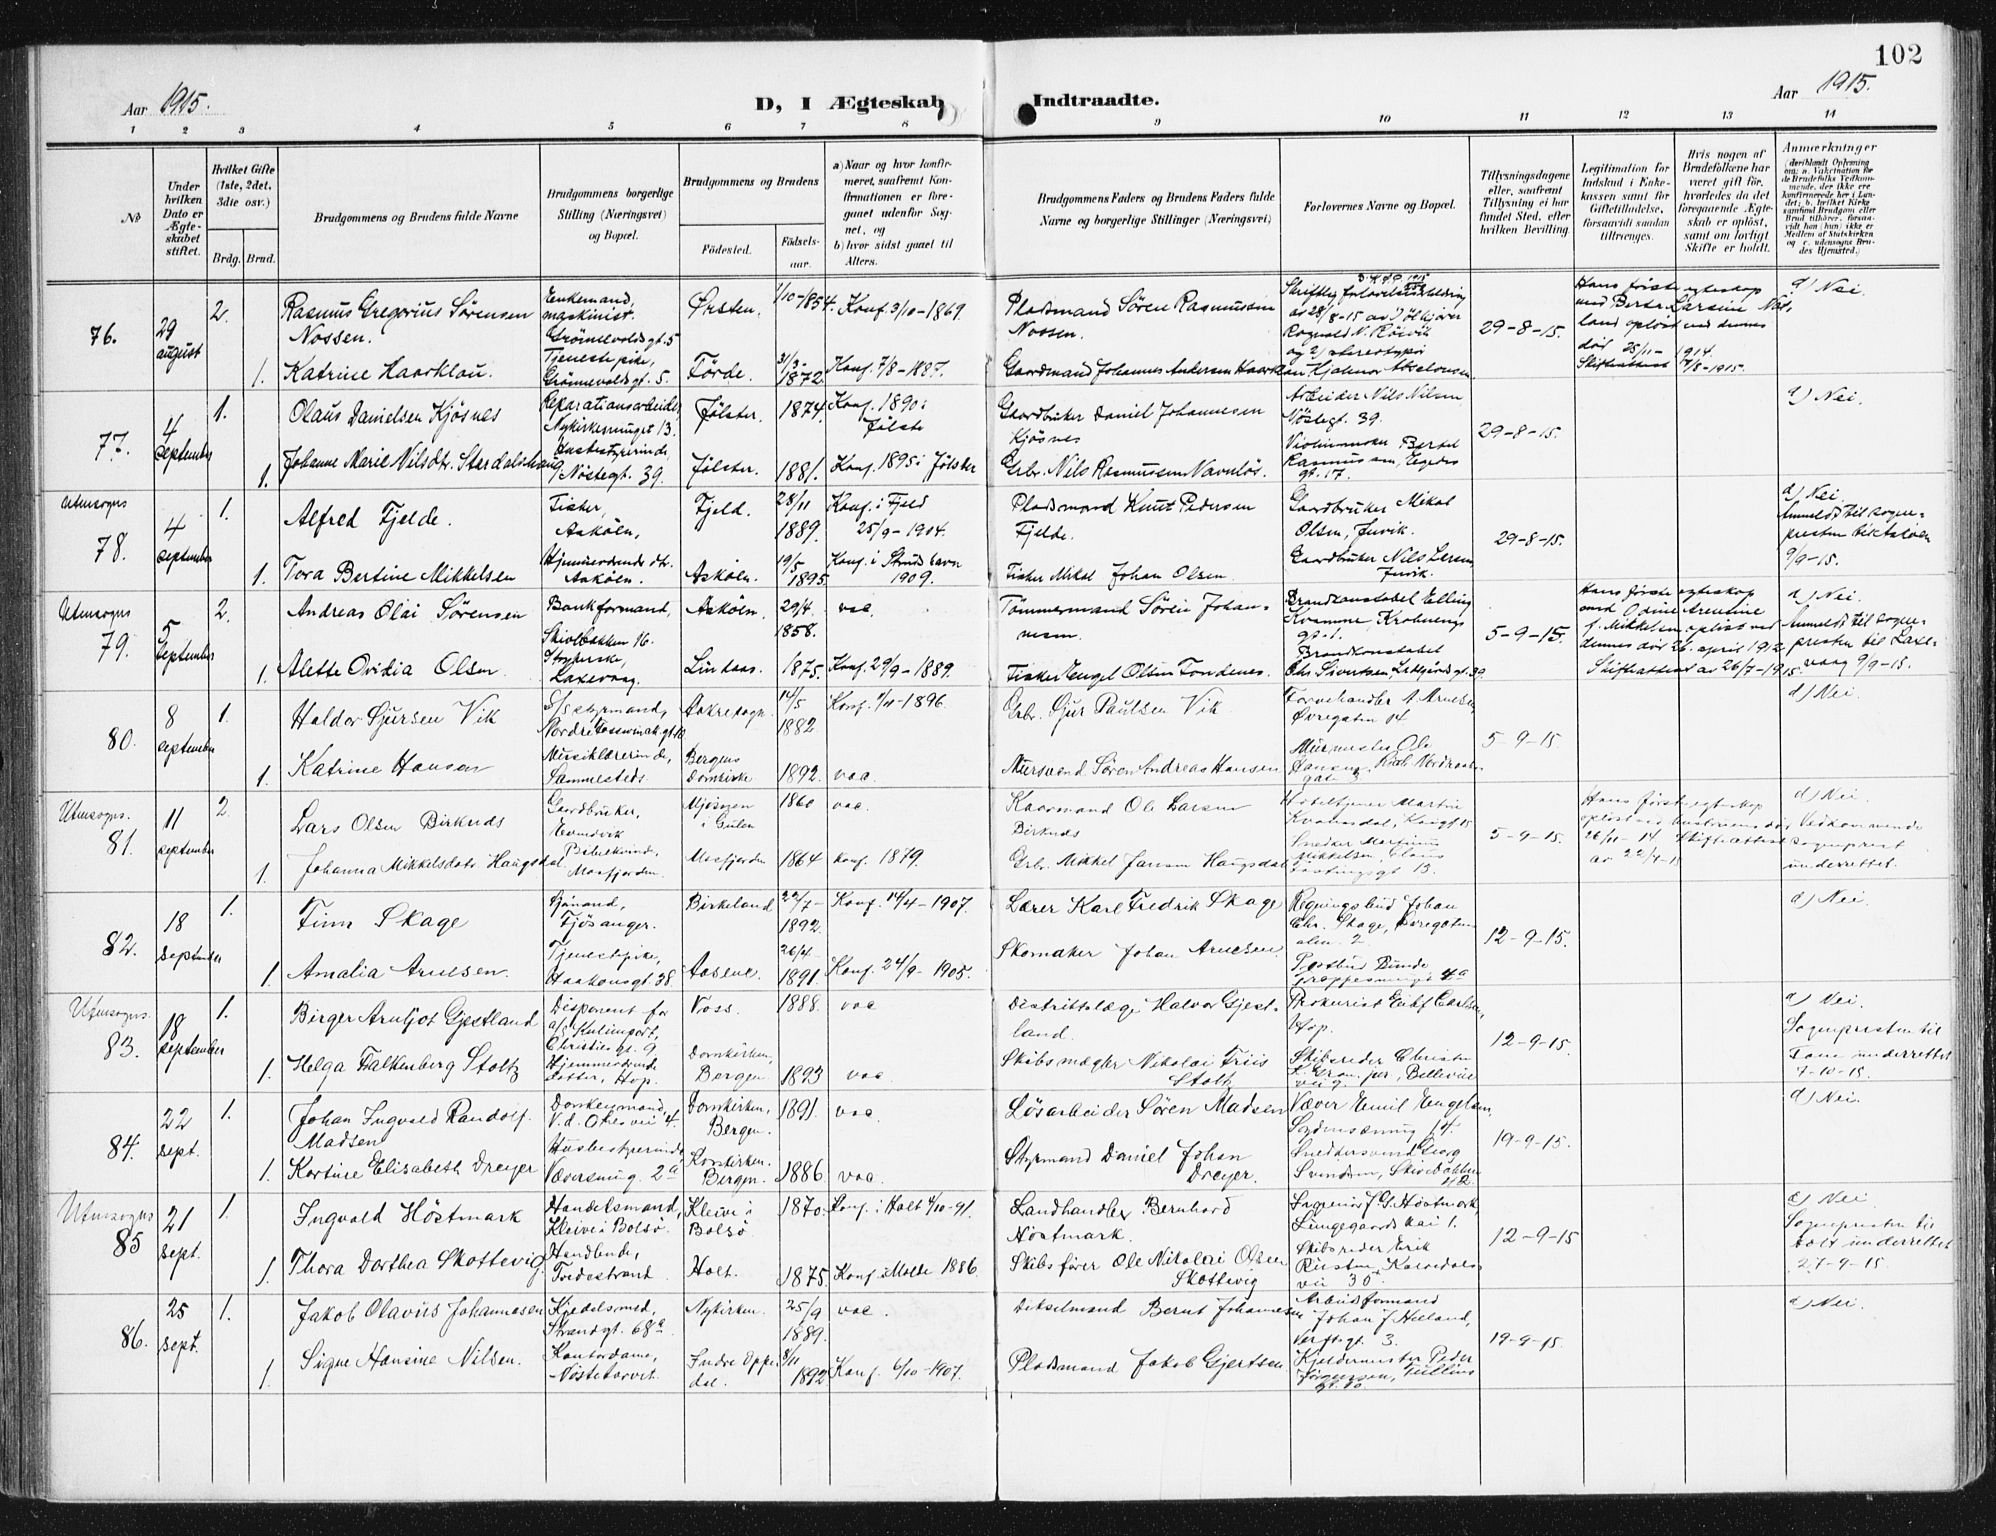 102
Aar 1915.
D, I Ægteskab Indtraadte.
Aar 1915.
1 2 3 4 5 6 7 8 9 10 11 12 13 14
No
Under hvilken Dato er Ægteskabet stiftet.
Hvilket Gifte (1ste, 2det, 3die osv.)
Brdg. Brud.
Brudgommens og Brudens fulde Navne
Brudgommens borgerlige Stilling (Næringsvei) og Bopæl.
Brudgommens og Brudens
Fødested.
Fødselsaar.
a) Naar og hvor konfirmeret, saafremt Konfirmationen er foregaaet udenfor Sognet, og
b) hvor sidst gaaet til Alters.
Brudgommens Faders og Brudens Faders fulde Navne og borgerlige Stillinger (Næringsvei)
Forlovernes Navne og Bopæl.
Tillysningsdagene eller, saafremt Tillysning ei har fundet Sted, efter hvilken Bevilling.
Legitimation for Indskud i Enkekassen samt for Giftetilladelse, forsaavidt saadan tiltrænges.
Hvis nogen af Brudefolkene har været gift før, hvorledes da det foregaaende Ægteskab er opløst, samt om lovligt Skifte er holdt.
Anmerkninger
76.
29 august
2.
Rasmus Gregorius Sørensen Nossen.
Enkemand, maskinist. Grønnevoldsgt. 5
Ørsten.
1/10-1854.
Konf. 3/10-1869.
Pladsmand Sören Rasmussen Nossen.
29-8-15.
a) Nei.
1.
Katrine Haarklau.
Tjenestepike, Grønnevoldsgt. 5.
Förde.
31/3-1872
Konf. 7/8-1887.
Gaardmand Johannes Andersen Haarklau
77.
4 september
1.
Olaus Danielsen Kjösnes
Reparationsarbeider, Nykirkesmuget 13.
Jølster.
1874.
Konf. 1890 i Jølste
Gaardbruker Daniel Johannesen Kjösnes
Arbeider Nils Nilsen, Nöstegt. 39.
29-8-15.
a) Nei.
1.
Johanne Marie Nilsdtr. Stardalshaug
Husbestyrerinde, Nöstegt. 39.
Jølster.
1881.
Konf. 1895 i Jølster
Grbr. Nils Rasmussen Navnløs.
Violinmaker Bertel Rasmussen, Egedes gt. 17.
Utensogns
78.
4 september
1.
Alfred Fjelde.
Fisker, Askøen,
Fjeld.
28/11 1889.
Konf. i Fjeld 25/9-1904.
Pladsmand Knut Pedersen Fjelde.
Gaardbruker Mikal Olsen, Juvik.
29-8-15.
a) Nei.
Anmeldt til sogne-
presten til Askøen
9/9-15.
1.
Tora Bertine Mikkelsen
Hjemmeværende dtr. Askøen.
Askøen.
19/5 1895.
Konf. i Strudshavn 1909.
Fisker Mikal Johan Olsen.
Gaardbruker Nils Larsen Juvik.
Utensogns
79.
5 september
2.
Andreas Olai Sørensen
Bankformand, Skivebakken 16.
Askøen.
29/4. 1858.
vaa.
Tömmermand Sören Johannesen.
Brandkonstabel Elling Kvamme, Krohnengs gt. 1.
5-9-15.
Hans første egteskap
med Odine Arensine
f. Mikkelsen opløst ved
dennes död 26. april 1912
Skifteattest av 26/7-1915.
a) Nei.
Anmeldt til sogne-
presten til Laxe-
vaag 9/9-15.
1.
Alette Ovidia Olsen
Stryperske, Laxevaag.
Lindaas.
1875.
Konf. 29/9-1889.
Fisker Engel Olsen Fondenes.
Brandkonstabel Chr. Sivertsen,
80.
8 september
1.
Haldor Gjursen Vik
S/s styrmand,
Aakresogn.
14/5 1882
Konf. 4/11-1896.
Grbr. Gjur Paulsen Vik
Farvehandler A. Arnesen, Øvregaten 14
5-9-15.
a) Nei.
1.
Katrine Hansen
Musiklærerinde, Sammesteds.
Bergens Domkirke
1892.
vaa.
Mursvend Sören Andreas Hansen
Murmester Ole Hansen,
Utensogns.
81.
11 september
2.
Lars Olsen Birknes
Gaardbruker, Evindvik
Mjösmyen i Gulen
1860
vaa.
Kaarmand Ole Larsen Birknes
5-9-15.
Hans første egteskap
26/11-14 Skifteattest
av 22/4-15
a) Nei
Vedkommende
sogneprest
underrettet.
1.
Johanna Mikkelsdatr Haugsdal
Masfjorden.
Masfjorden
1864
Konf. 1879.
Grb. Mikkel Jansen Haugsdal
Snedker Martinus Mikkelsen,
82.
18 september
1.
Finn Skage
Gjøsanger.
Birkeland
22/7-1892.
Konf. 14/4-1907.
Lærer Karl Fredrik Skage
Regningsbud Johan Chr. Skage, Øvregaten
12-9-15.
a) Nei.
1.
Amalia Arnesen.
Tjenestepike, Haakonsgt. 38.
Aasene.
26/4-1891
Konf. 24/9-1905.
Skomaker Johan Arnesen
Postbud Bunde,
Utensogns.
83.
18 september
1.
Birger Arnljot Gjestland
Disponent for a/s Kulimport, Christiesgt. 9
Voss.
1888.
vaa
Distriktslæge Halvor Gjestland.
Prokurist Carlsen, Hop.
12-9-15.
a) Nei.
Sognepresten til
Fana underrettet
7-10-15.
1.
Helga Falkenberg Stoltz
Hjemmeværende datter, Hop.
Domkirken, Bergen.
1893
vaa.
Skibsmægler Nikolai Friis Stoltz
Skibsreder Christen K. Gran jur, Bellevue vei 9.
84.
22 sept.
1.
Johan Ingvald Randolf Madsen
Domkirken, Bergen.
1891.
vaa.
Løsarbeider Sören Madsen
Væver Emil Engelsen,
19-9-15.
a) Nei.
1.
Kartine Elisabeth Dreyer
Husbestyrerinde Væversmug. 2a
Korskirken. Bergen.
1886
vaa.
Styrmand Daniel Johan Dreyer.
Snedkersvend Georg Svendsen, Skivebakken 42.
Utensogns
85
21 sept.
1.
Ingvald Höstmark
Handelsmand, Kleive i Bolsö.
Kleive i Bolsö
1870.
Konf. i Holt 4/10-91.
Landhandler Bernhard Höstmark.
Ingeniør J. G. Höstmark, Lungegaardskai 1.
12-9-15
a) Nei
Sognepresten til
Holt underrettet
27-9-15.
1.
Thora Dorthea Skottevig
Handlende, Tvedestrand.
Holt.
1875.
Konf. i Molde 1886.
Skibsfører Ole Nikolai Olsen Skottevig
Skibsreder Erik Rusten, Kalvedals vei 30
86.
25 sept.
1.
Jakob Olavus Johannesen
Kjedelsmed, Strandgt. 68a.
Nykirken.
25/9 1889.
vaa.
Dikselmand Bernt Johannesen
Arbeidsformand Johan J Helland, Verftsgt. 3.
19-9-15.
a) Nei.
1.
Signe Hansine Nilsen.
Kontordame, Nöstetorvet.
Indre Oppedal.
8/11 1892
Konf. 6/10-1907.
Pladsmand Jakob Gjertsen
Kjeldermester Peder Jörgensen, Tullins gt. 10